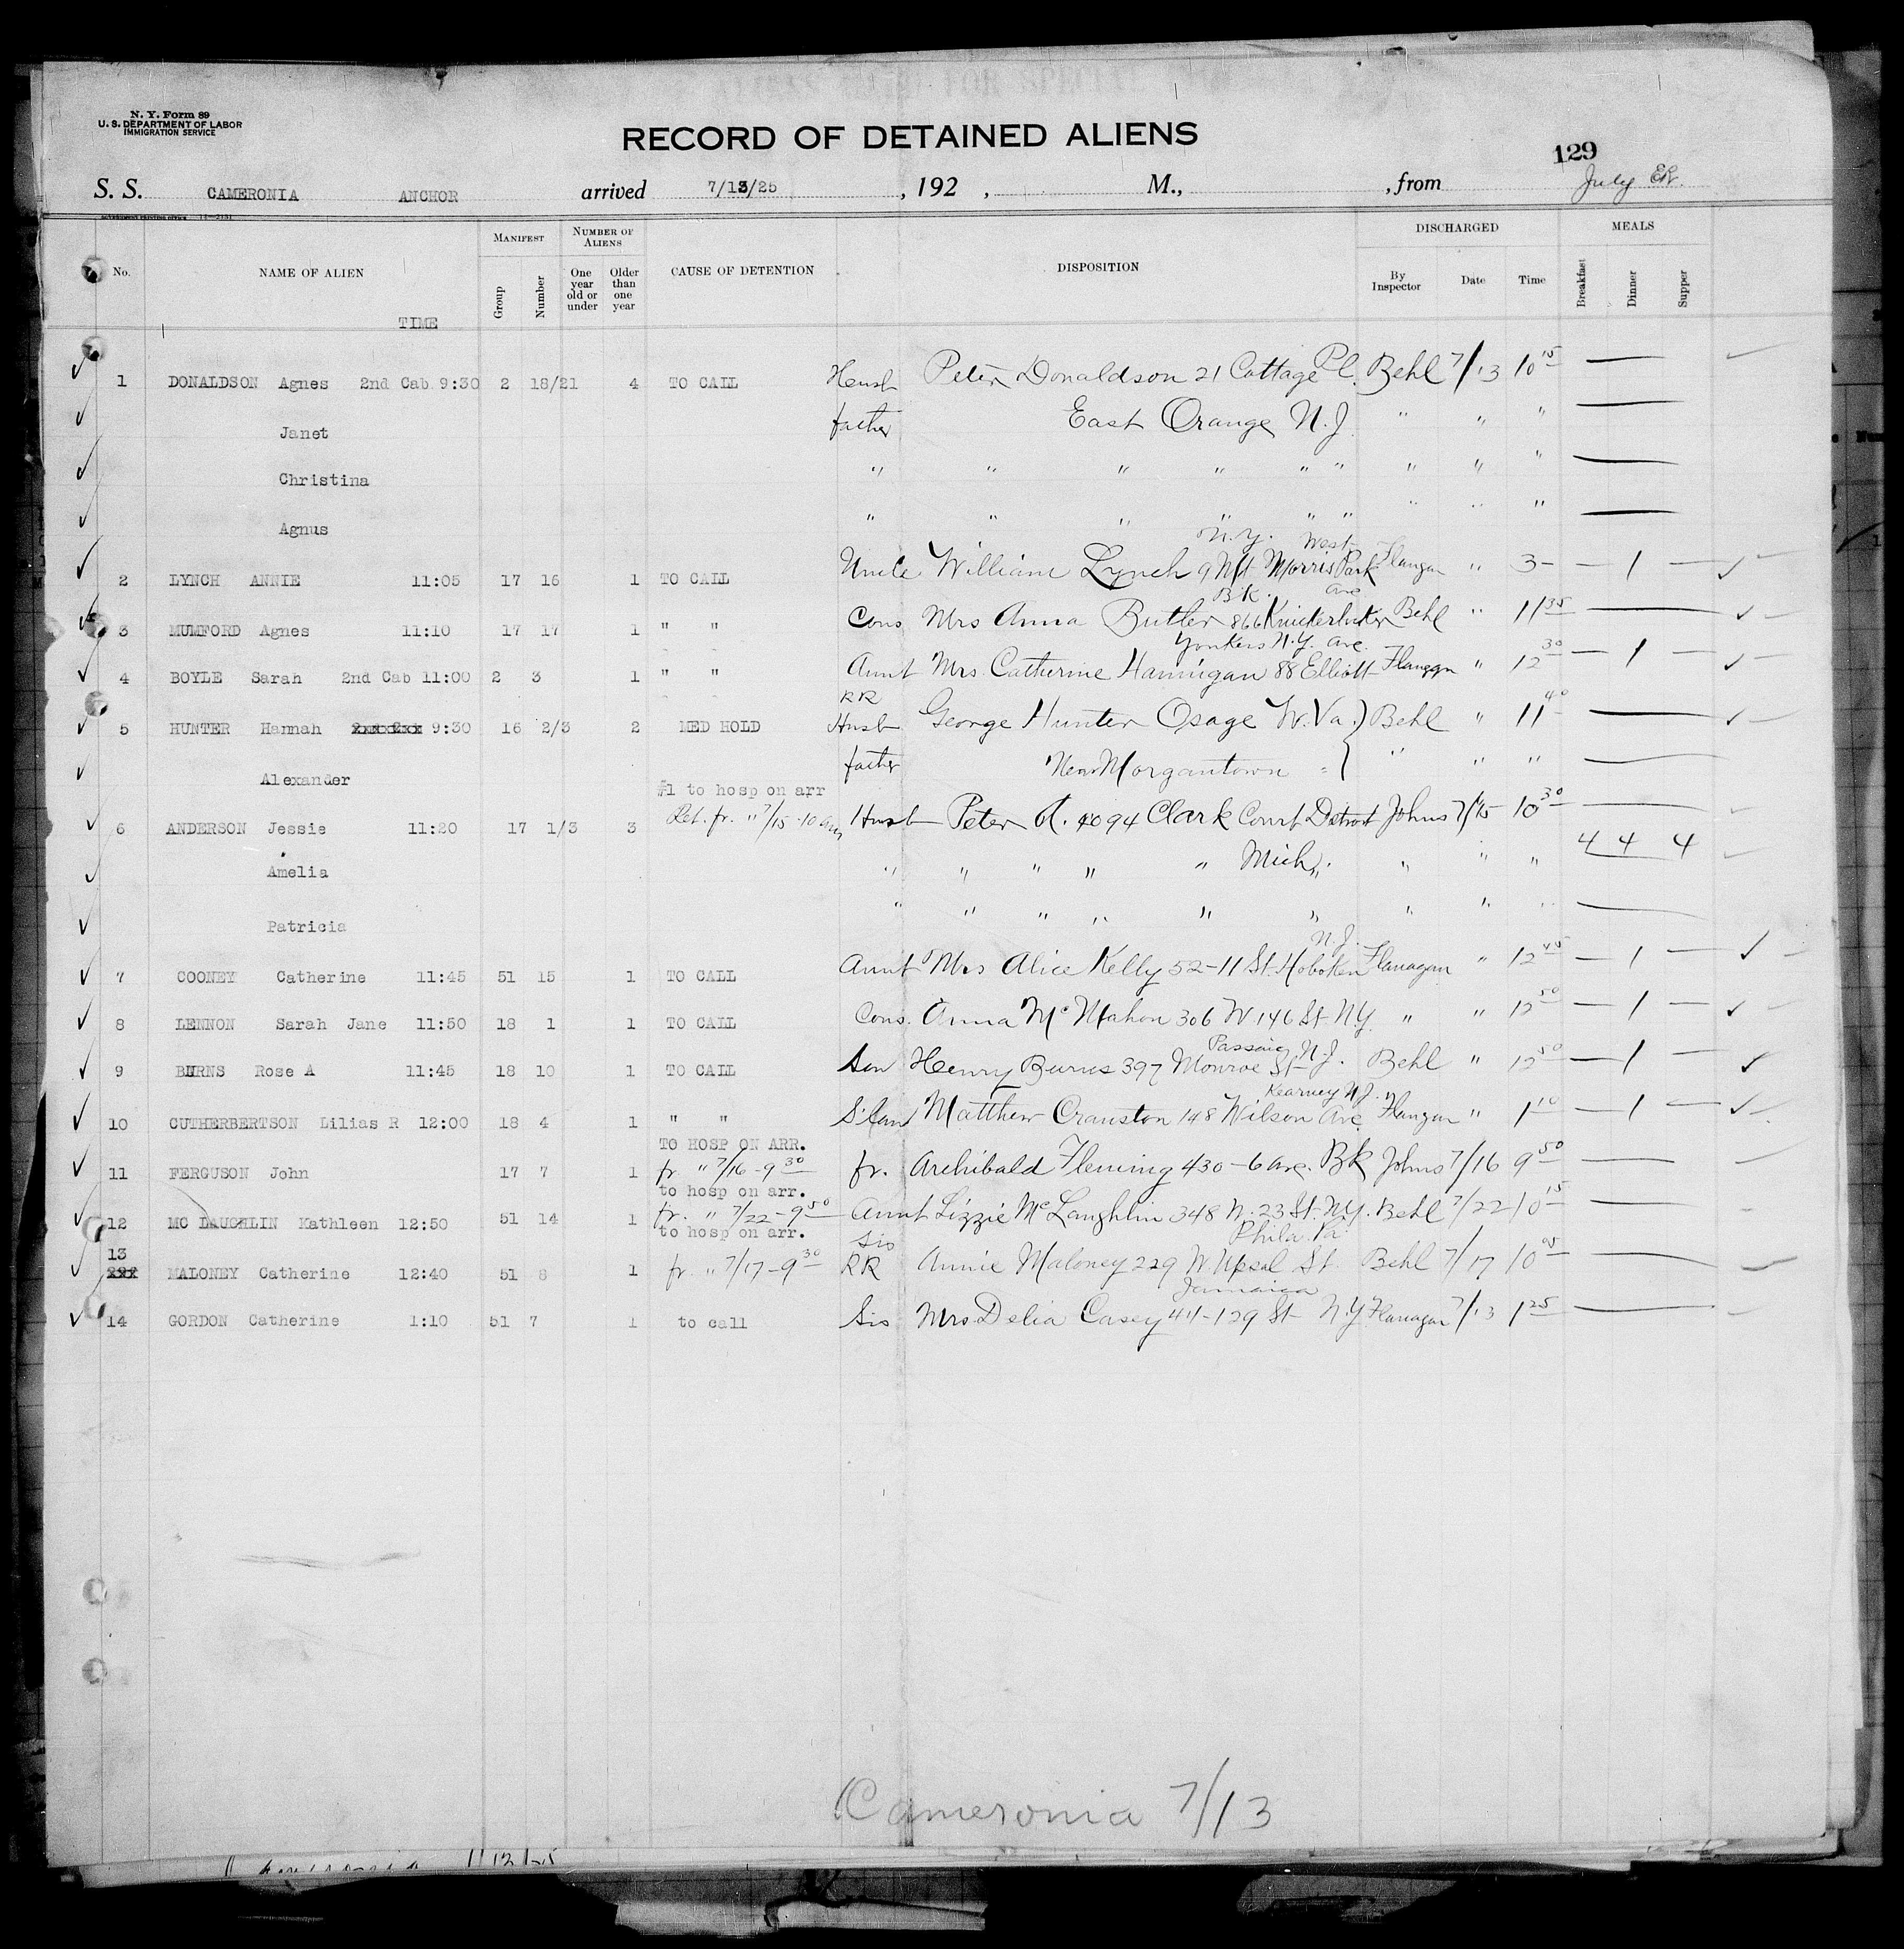 N. Y. Form 89
U. S. DEPARTMENT OF LABOR
IMMIGRATION SERVICE
RECORD OF DETAINED ALIENS
129
S. S. CAMERONIA ANCHOR arrived 7/13/25, 192 , M., , from July
GOVERNMENT PRINTING OFFICE
No. NAME OF ALIEN TIME MANIFEST Group Number NUMBER OF ALIENS One year old or under Older than one year CAUSE OF DETENTION DISPOSITION DISCHARGED By Inspector Date Time MEALS Breakfast Dinner Supper
1 DONALDSON Agnes 2nd Cab 9:30 2 18/21 4 TO CALL Husb Peter Donaldson 21 Cottage Pl. Behl 7/13 10 15 —
Janet father East Orange N.J. " " " —
Christina " " " " " " " " " —
Agnus " " " " " " " " " —
N.Y. West
2 LYNCH ANNIE 11:05 17 16 1 TO CALL Uncle William Lynch 9 Mt Morris Park Flangan " 3- — 1 —
Bk. Ave
3 MUMFORD Agnes 11:10 17 17 1 " " Cous Mrs Anna Butler 866 Knickerbocker Behl " 11 35 —
Yonkers N.Y. Ave.
4 BOYLE Sarah 2nd Cab 11:00 2 3 1 " " Aunt Mrs. Catherine Hannigan 88 Elliott Flanggn " 12 30 — 1 —
RR
5 HUNTER Hannah 9:30 16 2/3 2 MED HOLD Husb George Hunter Osage W. Va.) Behl " 11 40 —
Alexander father Near Morgantown " " " " —
#1 to hosp on arr
6 ANDERSON Jessie 11:20 17 1/3 3 Ret. fr. " 7/15 - 10 am Husb Peter A. 4094 Clark Court Detroit Johns 7/15 10 30 —
Amelia " " " " " Mich. " " " " 4 4 4
Patricia " " " " " " " " " —
N.J.
7 COONEY Catherine 11:45 51 15 1 TO CALL Aunt Mrs Alice Kelly 52-11 St. Hoboken Flanagan " 12 45 — 1 —
8 LENNON Sarah Jane 11:50 18 1 1 TO CALL Cous. Anna McMahon 306 W 146 St N.Y. " " 12 50 — 1 —
Passaic N.J.
9 BURNS Rose A 11:45 18 10 1 TO CALL Son Henry Burns 397 Monroe St Behl " 12 50 — 1 —
Kearney N.J.
10 CUTHERBERTSON Lilias R 12:00 18 4 1 " " Matthew Cranston 148 Wilson Ave. Flangan " 1 10 — 1 —
TO HOSP ON ARR.
11 FERGUSON John 17 7 1 fr. " 7/16 - 9 30 fr. Archibald Fleming 430-6 Ave. Bk Johns 7/16 9 50 —
to hosp on arr.
12 MC LAUGHLIN Kathleen 12:50 51 14 1 fr. " 7/22 - 9 50 Aunt Lizzie McLaughlin 348 W. 23 St. N.Y. Behl 7/22 10 15 —
to hosp on arr. Sis Phila. Pa
13 MALONEY Catherine 12:40 51 8 1 fr. " 7/17 - 9 30 RR Annie Maloney 229 W. Upsal St. Behl 7/17 10 05 —
Jamaica
14 GORDON Catherine 1:10 51 7 1 to call Sis Mrs Delia Casey 44-129 St N.Y. Flanagan 7/13 1 25 —
Cameronia 7/13